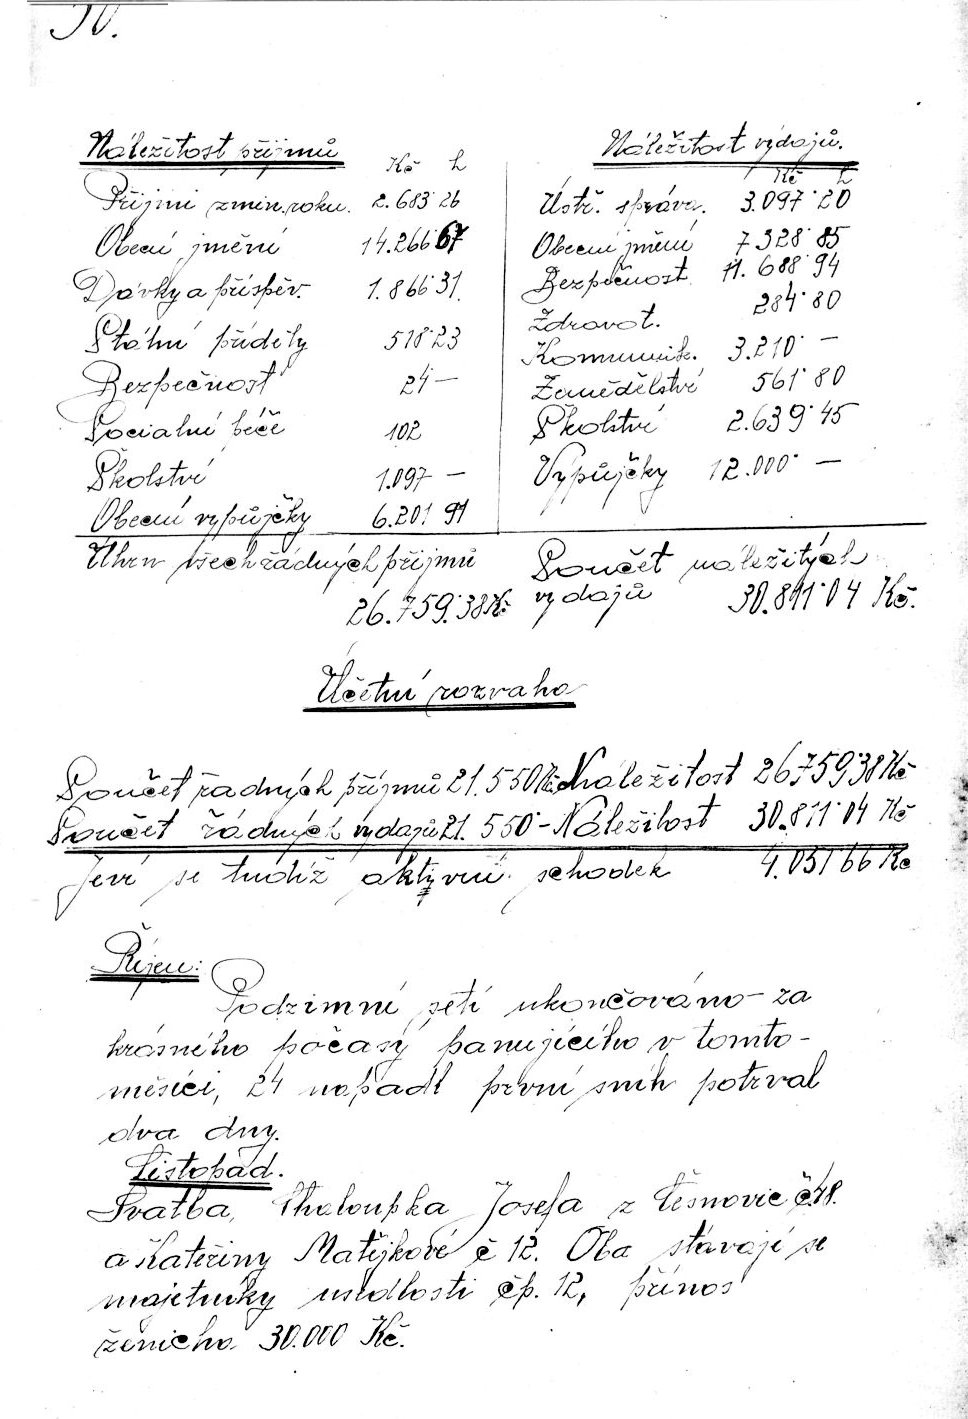 50.
Náležitost příjmů
Kč h
Příjmi z min. roku. 2.683˙26
Obecní jmění 14.266˙67
Dávky a příspěv. 1.866˙31
Státní příděly 518˙23
Bezpečnost 24 —
Socialní péče 102
Školství 1.097 —
Obecní vypůjčky 6.201 91
Úhrn všech řádných příjmů
26.759.38 Kč
Náležitost výdajů.
Kč h
Ústř. správa. 3.097˙20
Obecní jmění 7328˙85
Bezpečnost 11.688˙94
Zdravot. 284˙80
Komunik. 3.210˙ —
Zemědělství 561˙80
Školství 2.639˙45
Výpůjčky 12.000˙ —
Součet náležitých
vydajů 30.811˙04 Kč.
Účetní rozvaha
Součet řadných příjmů 21.550 Kč Náležitost 26759˙38 Kč
Součet řádných vydajů 21.550 - Náležitost 30.811˙04 Kč
Jeví se tudíž aktivní schodek 4.051 66 Kč
Říjen:
Podzimní setí ukončováno za
krásného počasý panujícího v tomto-
měsíci, 24 napadl první sníh potrval
dva dny.
Listopad.
Svatba, Chaloupka Josefa z Těšnovic č.48.
a Kateřiny Matějkové č 12. Oba stávají se
majetníky usedlosti čp. 12, přínos
ženicha 30.000 Kč.